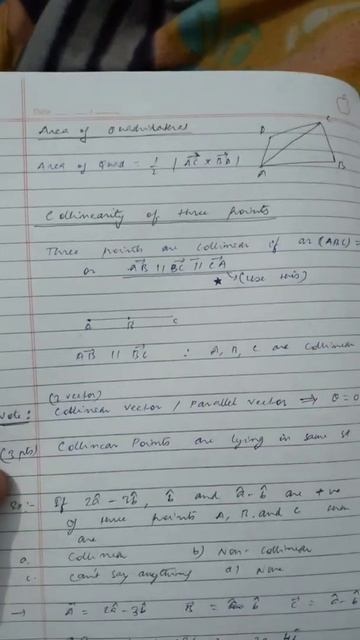 Date
Area of Quadrilateral
Area of Quad = 1/2 | AC⃗ x BD⃗ |
D
C
A
B
Collinearity of three points
Three points are collinear if ar(ABC) =
or AB⃗ || BC⃗ || CA⃗
★ (Use this)
A B C
AB⃗ || BC⃗ ∴ A, B, C are collinear
(2 vector)
Note: Collinear vector / Parallel vector ⇒ θ = 0
(3 pts) Collinear Points are lying in same st
If 2â - 3b̂, b̂ and â - b̂ are +ve
of three points A, B and C
are
a. Collinear b) Non-Collinear
c. can't say anything d) None
→ A⃗ = 2â - 3b̂ B⃗ = b̂ C⃗ = â - b̂